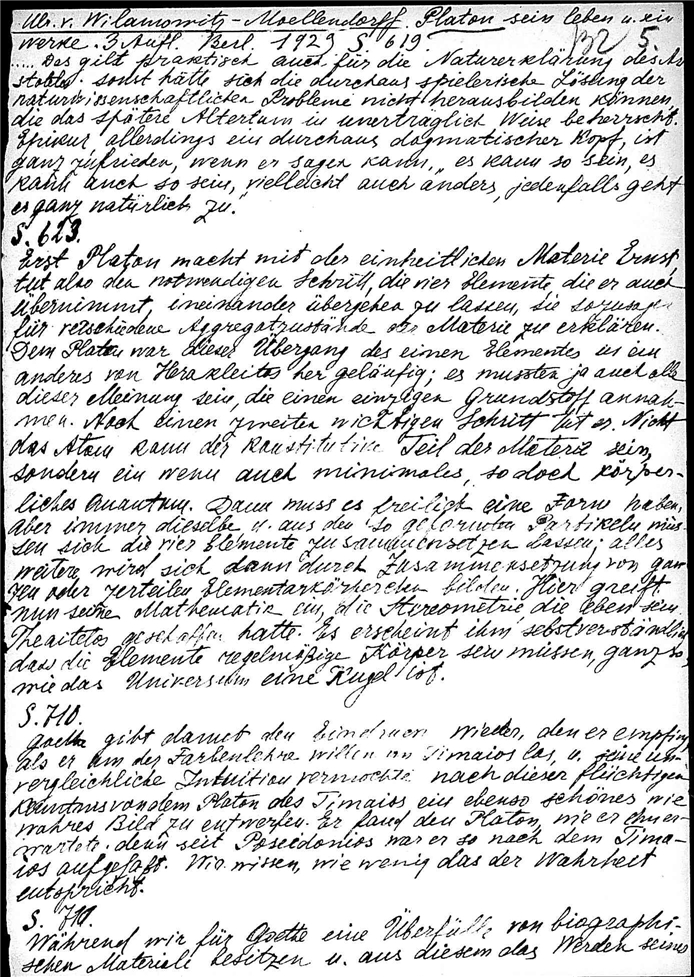 Ulr. v. Wilamowitz-Moellendorff. Platon sein leben u. ein
werke. 3 Aufl. Berl. 1929 S. 619. 5.
..... Das gilt praktisch auch für die Naturerklärung des Ari
stoteles. sonst hätte sich die durchaus spielerische Lösung der
naturwissenschaftlichen Probleme nicht herausbilden können,
die das spätere Altertum in unerträglich Weise beherrscht.
Epikur, allerdings ein durchaus dogmatischer Kopf, ist
ganz zufrieden, wenn er sagen kann, „es kann so sein, es
kann auch so sein, vielleicht auch anders, jedenfalls geht
es ganz natürlich zu."
S. 623.
Erst Platon macht mit der einheitlichen Materie Ernst,
tut also den notwendigen Schritt, die vier Elemente, die er auch
übernimmt, ineinander übergehen zu lassen, sie sozusagen
für verschiedene Aggregatzustände der Materie zu erklären.
Dem Platon war dieser Übergang des einen Elementes in ein
anderes von Herakleitos her geläufig; es mussten ja auch alle
dieser Meinung sein, die einen einzigen Grundstoff annah-
men. Noch einen zweiten wichtigen Schritt tut er. Nicht
das Atom kann der konstitutive Teil der Materie sein,
sondern ein wenn auch minimales, so doch körper-
liches Quantum. Dann muss es freilich eine Form haben,
aber immer dieselbe u. aus den so geformten Partikeln müs-
sen sich die vier Elemente zusammensetzen lassen; alles
weitere wird sich dann durch Zusammensetzung von gan-
zen oder zerteilten Elementarkörperchen bilden. Hier greift
nun seine Mathematik ein, die Stereometrie, die eben sein
Theaitetos geschaffen hatte. Es erscheint ihm selbstverständlich
dass die Elemente regelmäßige Körper sein müssen, ganz so,
wie das Universum eine Kugel ist.
S. 710.
Goethe gibt damit den Eindruck wieder, den er empfing
als er um der Farbenlehre willen den Timaios las, u. seine un-
vergleichliche Intuition vermochte nach dieser flüchtigen
Kenntnis von dem Platon des Timaios ein ebenso schönes wie
wahres Bild zu entwerfen. Er fand den Platon, wie er ihn er-
wartete. denn seit Poseidonios war er so nach dem Tima-
ios aufgefaßt. Wir wissen, wie wenig das der Wahrheit
entspricht.
S. 711.
Während wir für Goethe eine Überfülle von biographi-
schen Materiale besitzen u. aus diesem das Werden seines